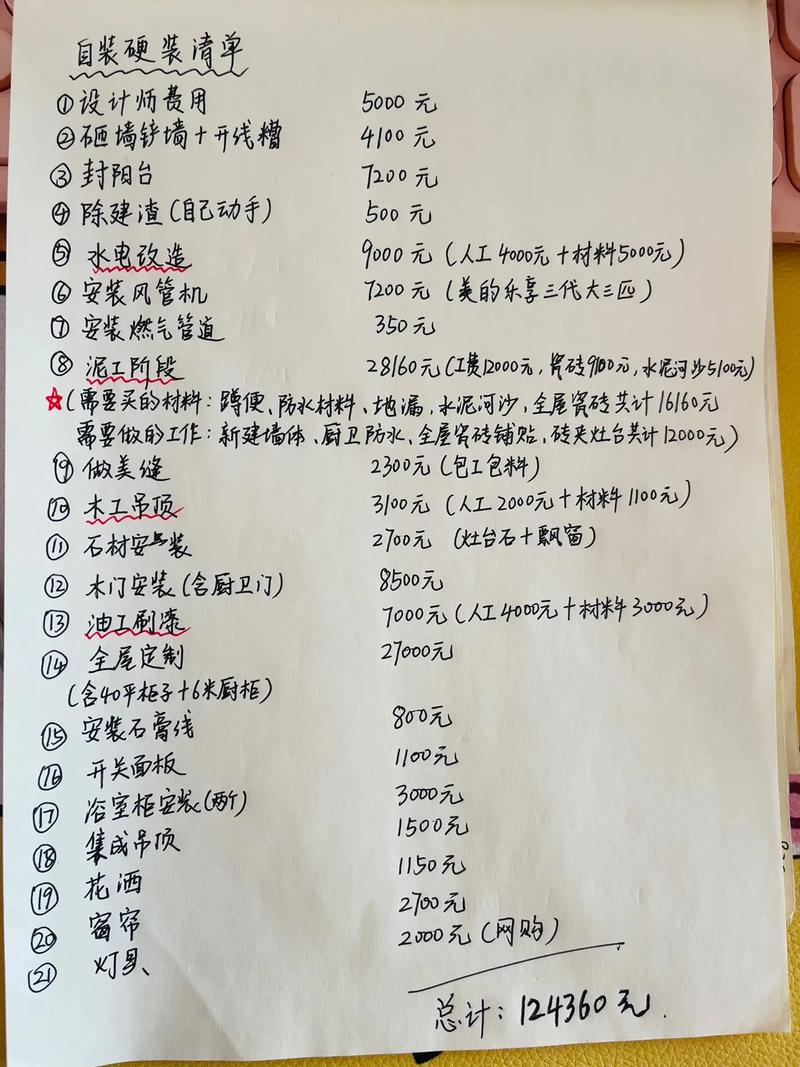 自装硬装清单
①设计师费用 5000元
②砸墙铲墙+开线糟 4100元
③封阳台 7200元
④除建渣(自己动手) 500元
⑤水电改造 9000元(人工4000元+材料5000元)
⑥安装风管机 7200元(美的乐享三代大三匹)
⑦安装燃气管道 350元
⑧泥工阶段 28160元(工费12000元,瓷砖9100元,水泥河沙5100元)
☆(需要买的材料:蹲便、防水材料、地漏,水泥河沙,全屋瓷砖共计16160元
需要做的工作:新建墙体、厨卫防水、全屋瓷砖铺贴,砖夹灶台共计12000元)
⑨做美缝 2300元(包工包料)
⑩木工吊顶 3100元(人工2000元+材料1100元)
⑪石材安装 2700元(灶台石+飘窗)
⑫木门安装(含厨卫门) 8500元
⑬油工刷漆 7000元(人工4000元+材料3000元)
⑭全屋定制 27000元
(含40平柜子+6米厨柜)
⑮安装石膏线 800元
⑯开关面板 1100元
⑰浴室柜安装(两个) 3000元
⑱集成吊顶 1500元
⑲花洒 1150元
⑳窗帘 2700元
㉑灯具 2000元(网购)
总计:124360元.